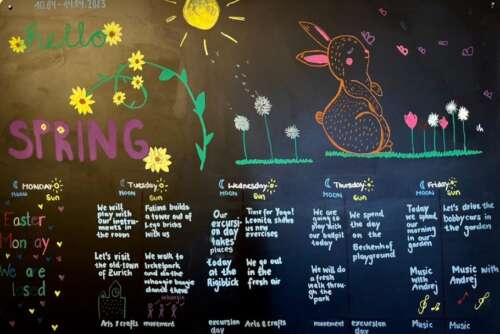 10.04 - 14.04.2023
hello
SPRING
MONDAY
MOON SUN
Easter
Monday
We are
closed
Tuesday
MOON SUN
We will
play with
our instru-
ments in
the room
Let's visit
the old town
of Zurich
Arts & crafts
Fatima builds
a tower out of
Lego bricks
with us
We walk to
park
and
the
dance there
movement
Wednesday
MOON SUN
Our
excursi-
on day
takes
place
today
at the
Rigiblick
excursion
day
Time for Yoga!
shows us
new
exercises
We go out
in the
fresh air
Arts & crafts
Thursday
MOON SUN
We are
going to
play with
our
today
We will do
a fresh
walk throu-
gh the
park
movement
We spend
the day
on the
Beckenhof
playground
excursion
day
Friday
MOON SUN
Today
we spend
our
morning
in our
garden
Music
with
Andrej
Music
Let's drive the
bobbycars in
the garden
Music with
Andrej
Music